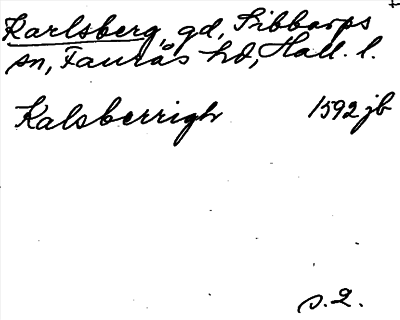 Karlsberg, gd, Sibbarps
sn, Faurås hd, Hall. l.
Kalsberrigh 1592 jb
s. 2.